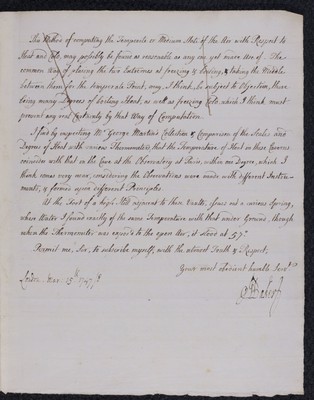 This Method of computing the Temperate or Medium State of the Air with Respect to
Heat and Cold, may possibly be found as reasonable as any one yet made Use of. The
common Way of placing the two Extremes at freezing & boiling, & taking the Middle
between them for the temperate Point, may, I think, be subject to Objection, there
being many Degrees of boiling Heat, as well as freezing Cold, which I think must
prevent any real Certainty by that Way of Computation.
I find by inspecting Mr. George Martin's Collection & Comparison of the Scales and
Degrees of Heat with various Thermometers, that the Temperature of Heat in these Caverns
coincides with that in the Cave at the Observatory at Paris, within one Degree, which I
think comes very near, considering the Observations were made with different Instru-
ments, & formed upon different Principles.
At the Foot of a high Hill adjacent to these Vaults, issues out a curious Spring,
whose Water I found exactly of the same Temperature with that under Ground, though
when the Thermometer was expos'd to the open Air, it stood at 57°.
Permit me, Sir, to subscribe myself, with the utmost Truth & Respect,
Your most obedient humble Serv.t
London, 15th 1747/8